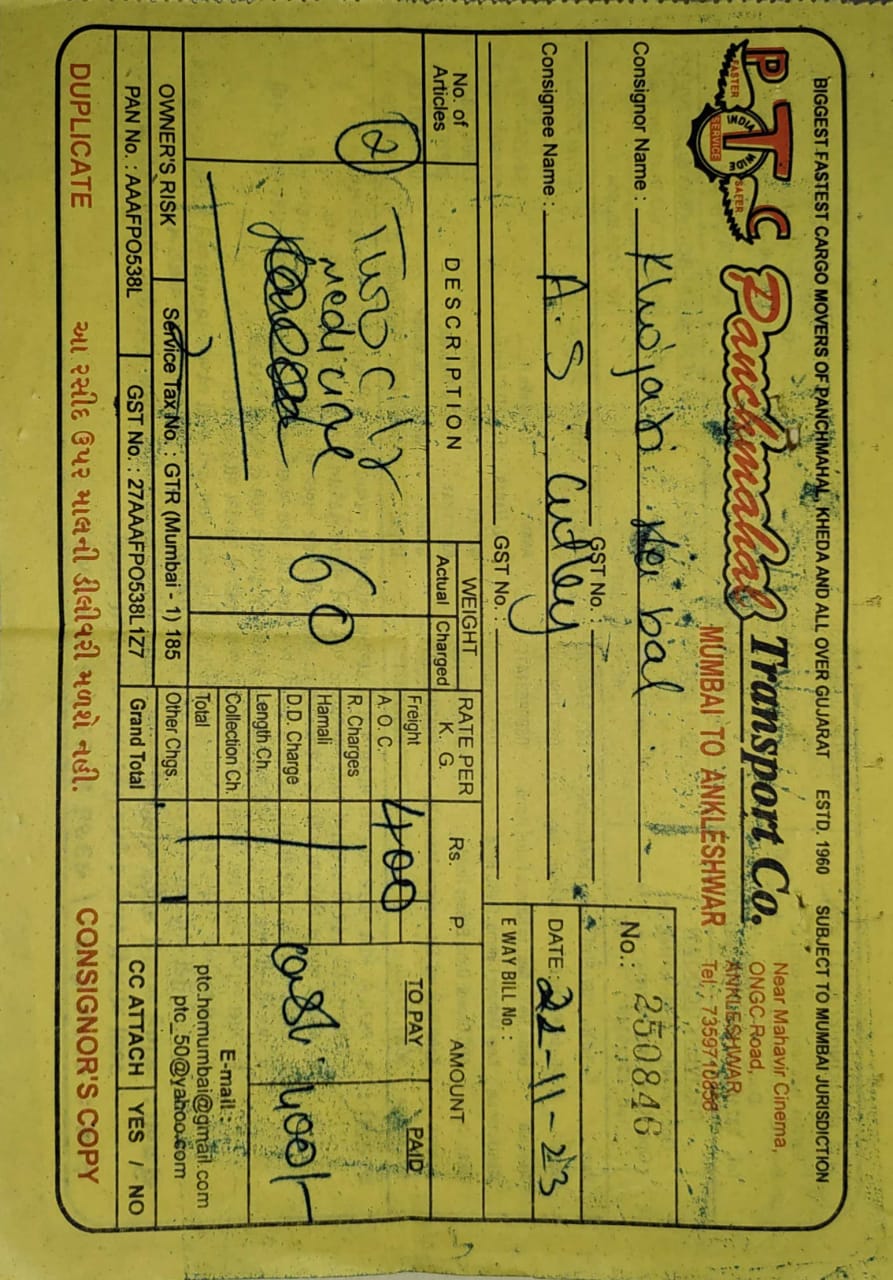 BIGGEST FASTEST CARGO MOVERS OF PANCHMAHAL, KHEDA AND ALL OVER GUJARAT ESTD. 1960 SUBJECT TO MUMBAI JURISDICTION
PTC
FASTER INDIA WIDE SAFER
SERVICE
Panchmahal Transport Co.
MUMBAI TO ANKLESHWAR
Near Mahavir Cinema,
ONGC-Road,
ANKLESHWAR,
Tel. : 7359710858
Consignor Name :
GST No. :
No.: 250846
Consignee Name : A. S. Cutley
GST No. :
DATE : 21-11-23
E WAY BILL No. :
No. of Articles DESCRIPTION WEIGHT Actual Charged RATE PER K. G. Rs. P. AMOUNT
TO PAY PAID
2 Two C/B
medicine
60
Freight 400
A. O. C.
R. Charges
Hamali
D.D. Charge
Length Ch.
Collection Ch.
Total
Other Chgs.
Grand Total
400/-
E-mail :
ptc.homumbai@gmail.com
ptc_50@yahoo.com
OWNER'S RISK Service Tax No. : GTR (Mumbai - 1) 185
PAN No. : AAAFPO538L GST No. : 27AAAFPO538L1Z7
CC ATTACH YES / NO
DUPLICATE આ રસીદ ઉપર માલની ડીલીવરી મળશે નહી. CONSIGNOR'S COPY